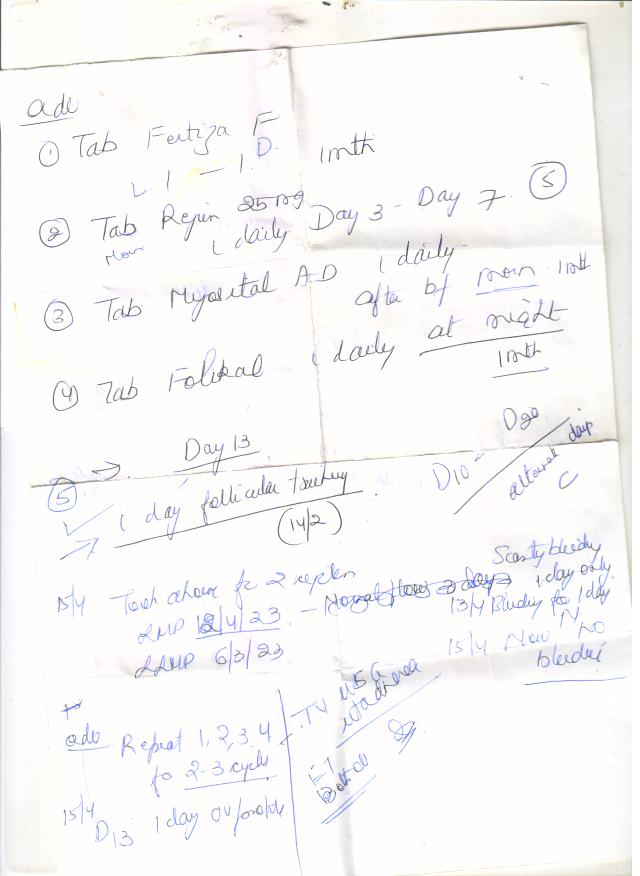 adv
① Tab Fertiza F
1 — 1 D. 1 mth
② Tab Rejun 25 mg
1 daily Day 3 - Day 7 ⑤
③ Tab Myosital AD 1 daily
after bf morn 1 mth
④ Tab Folikal 1 daily at night
1 mth
→ Day 13
⑤ 1 day follicular
(14/2)
D10 D20
alternate days
15/4 Took above for 2
LMP 12/4/23 - Normal flow 3 days
LLMP 6/3/23
Scanty bleeding
1 day only
13/4 Bleeding for 1 day
15/4 Now No
bleeding
adv Repeat 1, 2, 3, 4
for 2-3 cycle
15/4 D13 1 day
TV USG
ET